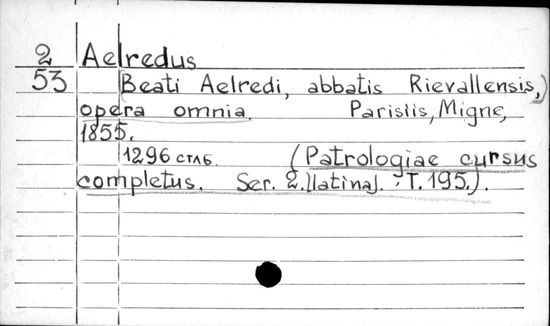 2 Aelredus
53 Beati Aelredi, abbatis Rievallensis,)
opera omnia. Parisiis, Migne,
1855.
1296 стлб. (Patrologiae cursus
completus. Ser. 2.[latina]. ; T. 195.).